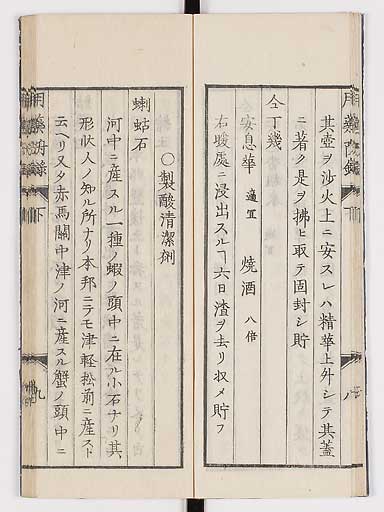 其壺ヲ沙火上ニ安スレハ精華上升シテ其蓋
ニ著ク是ヲ拂ヒ取テ固封シ貯
仝丁幾
仝安息華 適宜 燒酒 八倍
右暖處ニ浸出スルヿ六日渣ヲ去リ収メ貯フ
○製酸清潔劑
蝲蛄石
河中ニ産スル一種ノ蝦ノ頭中ニ在ル小石ナリ其
形狀人ノ知ル所ナリ本邦ニテモ津軽松前ニ産スト
云ヘリ又タ赤馬關中津ノ河ニ産スル蟹ノ頭中ニ
下
九